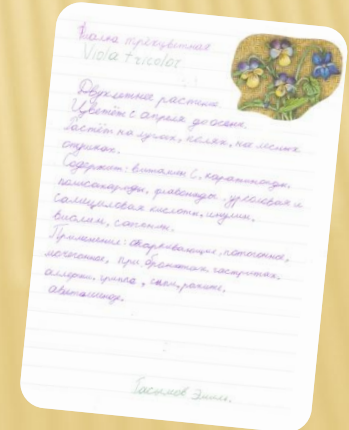 Фиалка трёхцветная
Viola tricolor
Двухлетнее растение.
Цветёт с апреля до осени.
Растёт на лугах, полях, на лесных
опушках.
Содержит: витамин С, каротиноиды,
полисахариды, флавоноиды, урсоловая и
салициловая кислоты, инулин,
сапонин.
Применение: отхаркивающие, потогонное,
мочегонное, при бронхитах, гастритах,
аллергии, гриппе, рахите,
авитаминозе.
Гасымов Эмиль.